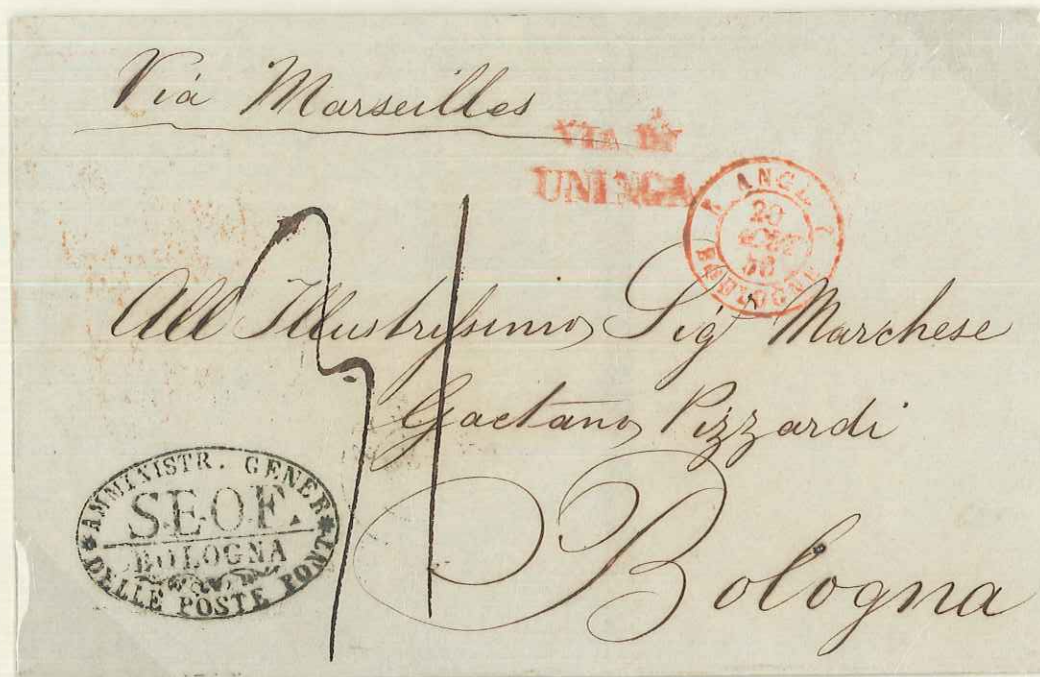 Via Marseilles
VIA DI
UNINGA
ANGL.
20
BOULOGNE
All Illustrissimo Sig Marchese
Gaetano Pizzardi
Bologna
AMMINISTR. GENER
SEOF.
BOLOGNA
DELLE POSTE PONT